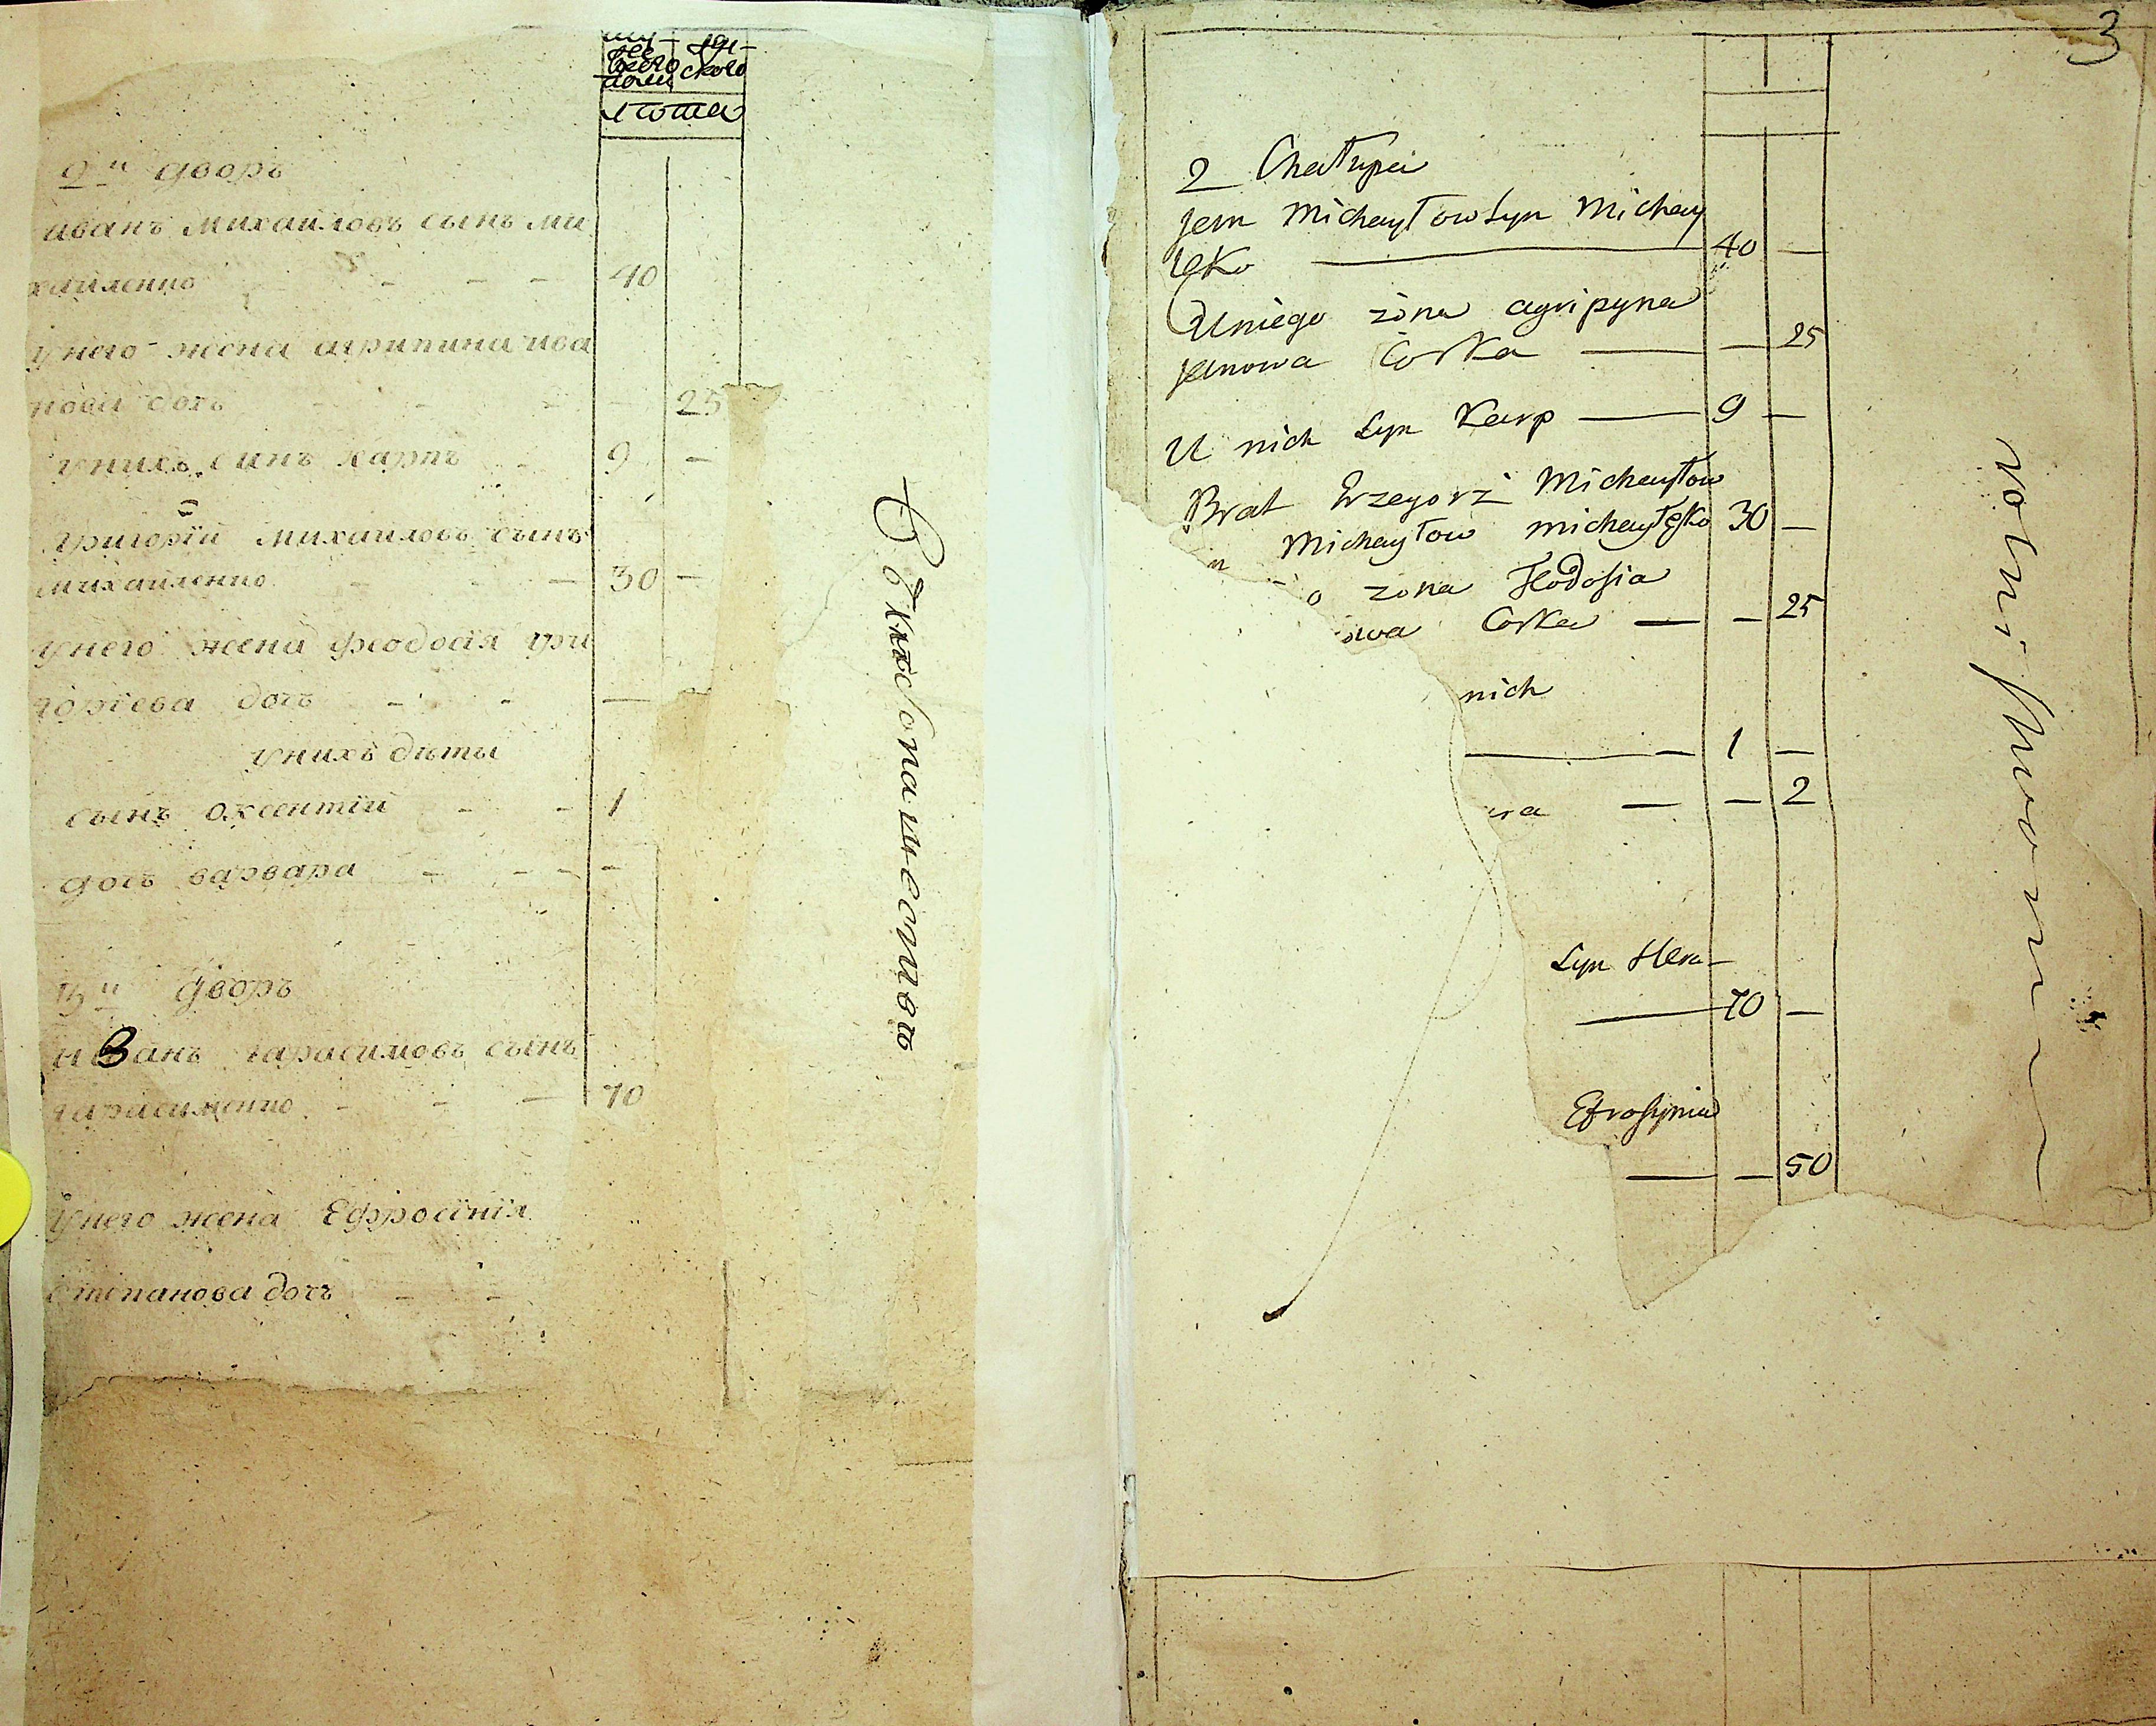 му- жи-
ско
лѣта
2й дворъ
иванъ михаиловъ сынъ ми
хайленко - - - 40
унего жена агрипина ива
нова дочь - - - 25
унихъ синъ карпъ - 9 -
григорїй михаиловъ сынъ
михаиленко - - - 30 -
унего жена феодосїя гри
горїева дочь - - -
унихъ дѣты
сынъ охсентїй - - 1
дочь варвара - - - -
3й дворъ
иванъ гарасимовъ сынъ
гарасименко - - - 70
унего жена Ефросїнїя
степанова дочь - -
3
2 Chałupa
Jan Michayłow Syn Michay
lęko — 40 —
U niego żona agripyna
Janowa Corka — — 25
U nich Syn Karp — 9 —
Brat Grzegorz Michayłow
Michayłow michaylęko 30 —
o zona Fłodosia
owa Corka — — 25
nich
— 1 —
ara — — 2
Syn Hera-
— 70 —
Efrosynia
— — 50